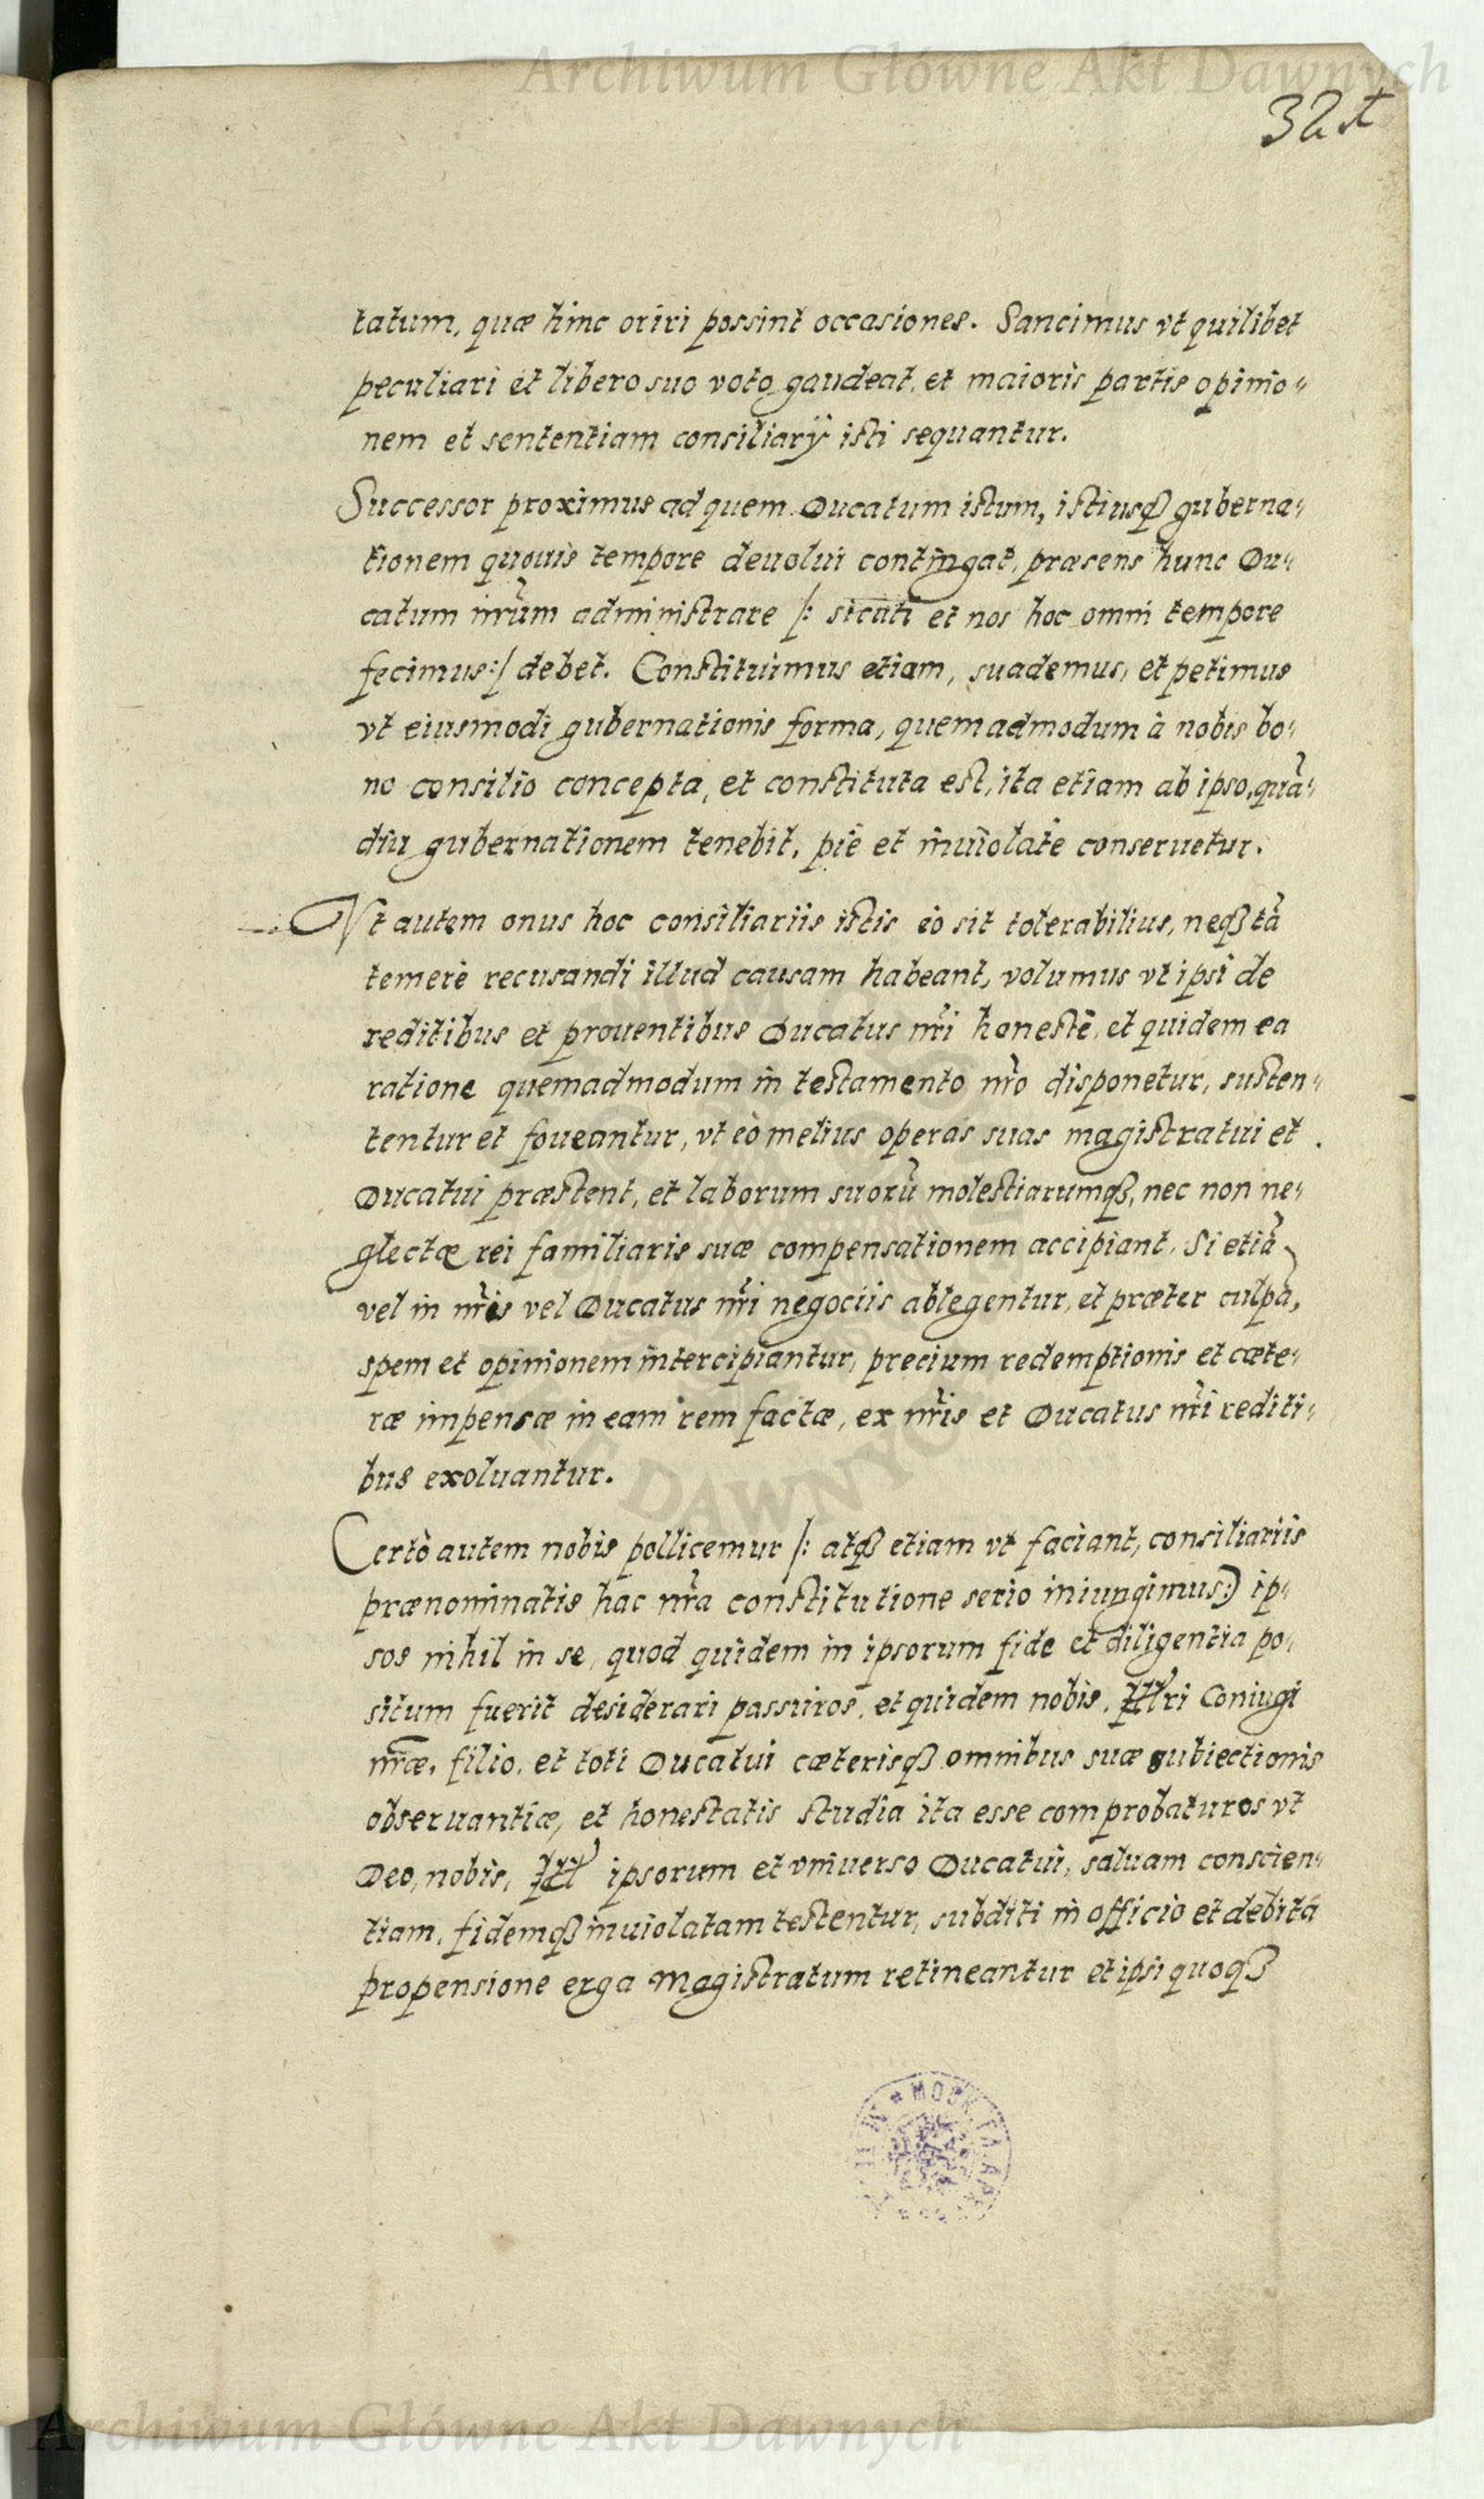 Archiwum Główne Akt Dawnych
32
tatum, quæ hinc oriri possint occasiones. Sancimus vt quilibet
peculiari et libero suo voto gaudeat, et maioris partis opinio⸗
nem et sententiam consiliarÿ isti sequantur.
Successor proximus ad quem Ducatum istum, istiusqȝ guberna⸗
tionem quouis tempore deuolui contingat, præsens hunc Du⸗
catum nr̃um administrare /: sicuti et nos hoc omni tempore
fecimus :/ debet. Constituimus etiam, suademus, et petimus
vt eiusmodi gubernationis forma, quemadmodum à nobis bo⸗
no consilio concepta, et constituta est, ita etiam ab ipso, quã⸗
diu gubernationem tenebit, piè et inuiolatè conseruetur.
Vt autem onus hoc consiliariis istis eò sit tolerabilius, neqȝ tã
temerè recusandi illud causam habeant, volumus vt ipsi de
reditibus et prouentibus Ducatus nr̃i honestè, et quidem ea
ratione quemadmodum in testamento nr̃o disponetur, susten⸗
tentur et foueantur, vt eò melius operas suas magistratui et
Ducatui præstent, et laborum suorũ molestiarumqȝ, nec non ne⸗
glectæ rei familiaris suæ compensationem accipiant. Si etiã
vel in nr̃is vel Ducatus nr̃i negociis ablegentur, et præter culpã,
spem et opinionem intercipiantur, precium redemptionis et cæte⸗
ræ impensæ in eam rem factæ, ex nr̃is et Ducatus nr̃i rediti⸗
bus exoluantur.
Certò autem nobis pollicemur /: atqȝ etiam vt faciant, consiliariis
prænominatis hac nr̃a constitutione serio iniungimus :) ip⸗
sos nihil in se, quod quidem in ipsorum fide et diligentia po⸗
situm fuerit desiderari passuros, et quidem nobis, Illr̃i Coniugi
nr̃æ, filio, et toti Ducatui cæterisqȝ omnibus suæ subiectionis
obseruantiæ, et honestatis studia ita esse comprobaturos vt
Deo, nobis, ipsorum et vniuerso Ducatui, saluam conscien⸗
tiam, fidemqȝ inuiolatam testentur, subditi in officio et debita
propensione erga Magistratum retineantur et ipsi quoqȝ
DAWNYCH
Archiwum Główne Akt Dawnych